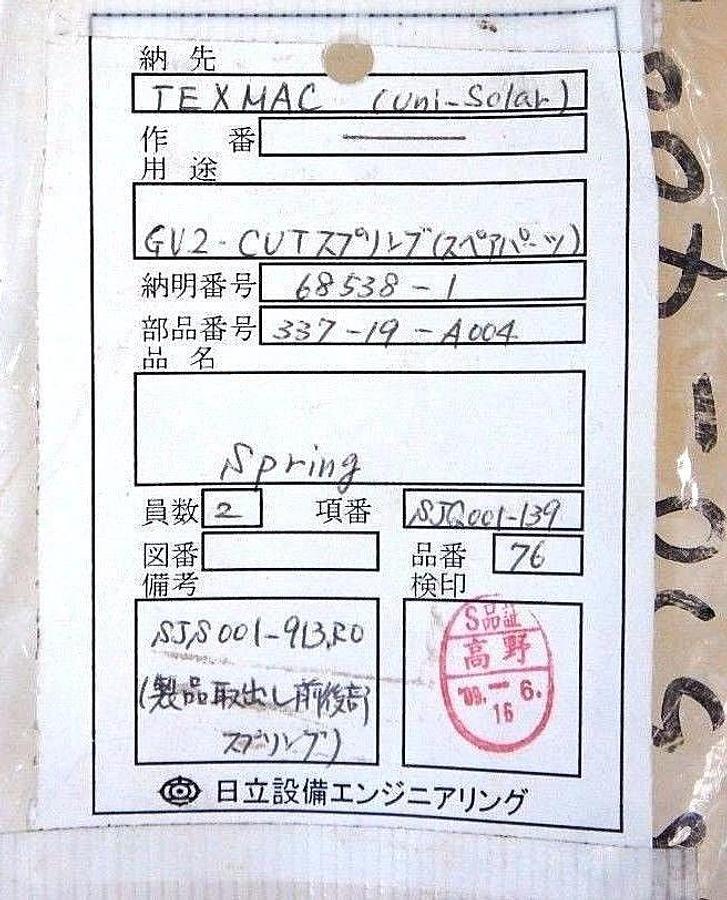 納先
TEXMAC (Uni-Solar)
作番 —
用途
GV2-CUTスプリング(スペアパーツ)
納明番号 68538-1
部品番号 337-19-A004
品名
Spring
員数 2 項番 SJQ001-139
図番 品番 76
備考 検印
SJS001-913.R0
(製品取出し前後部
スプリング)
S品証
高野
'09.-6.
16
日立設備エンジニアリング